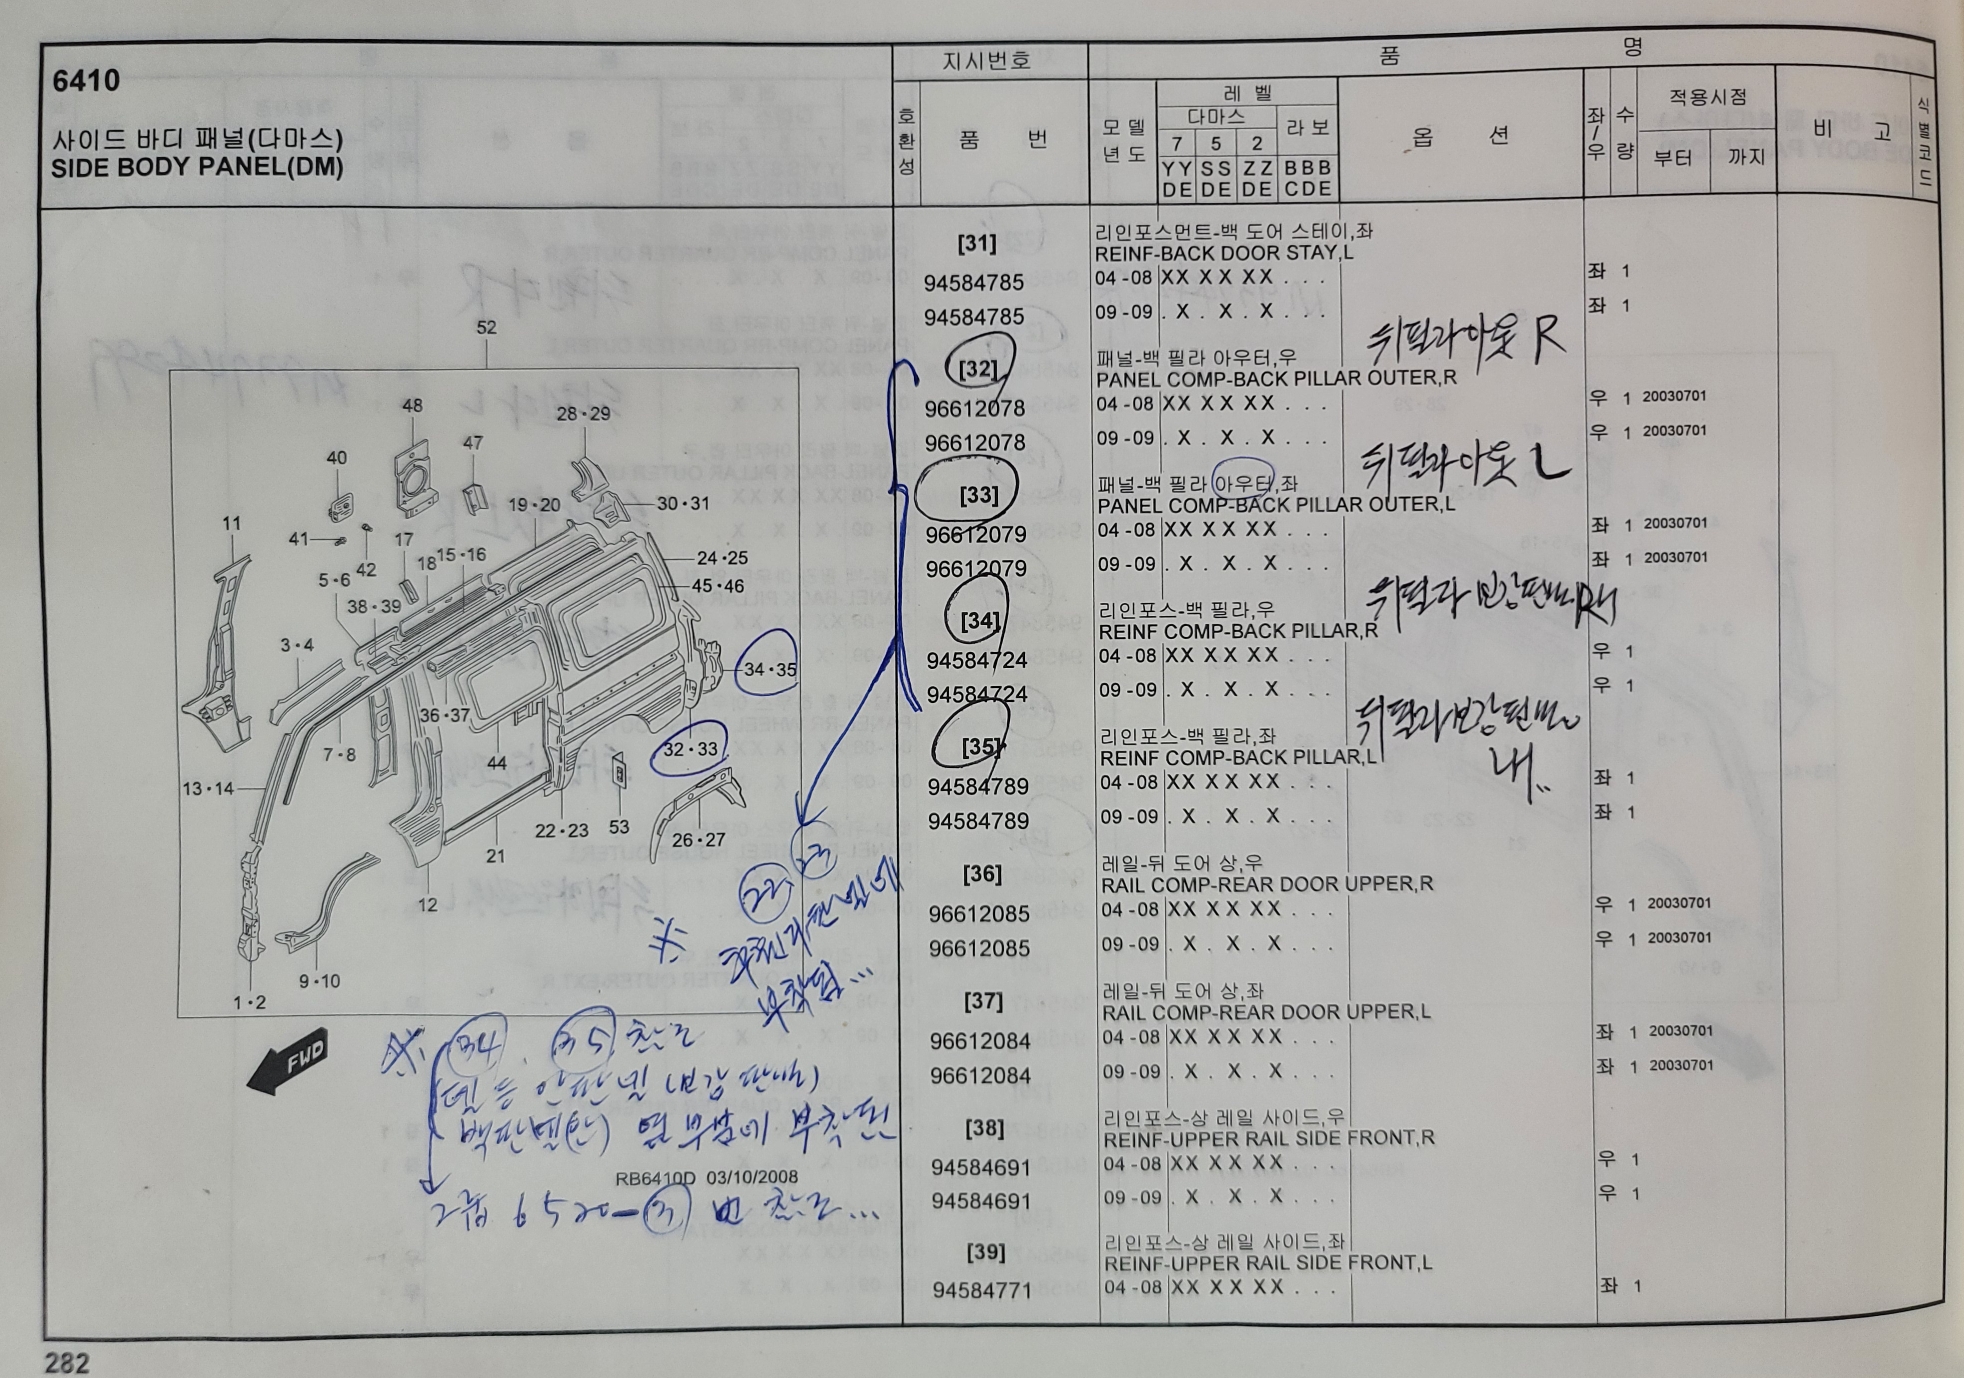 6410
사이드 바디 패널(다마스)
SIDE BODY PANEL(DM)
지시번호
품 명
호환성
품 번
모델년도
레 벨
다마스
라 보
7 5 2
YY SS ZZ BBB
DE DE DE CDE
옵 션
좌/우
수량
적용시점
부터 까지
비 고
식별코드
52
48
28·29
47
40
19·20
30·31
11
41
42
17
18
15·16
24·25
5·6
45·46
38·39
3·4
34·35
36·37
32·33
7·8
44
13·14
22·23
53
26·27
21
12
9·10
1·2
FWD
RB6410D 03/10/2008
[31] 리인포스먼트-백 도어 스테이,좌
REINF-BACK DOOR STAY,L
94584785 04-08 XX XX XX . . . 좌 1
94584785 09-09 . X . X . X . . . 좌 1
뒤필라아웃 R
[32] 패널-백 필라 아우터,우
PANEL COMP-BACK PILLAR OUTER,R
96612078 04-08 XX XX XX . . . 우 1 20030701
96612078 09-09 . X . X . X . . . 우 1 20030701
뒤필라아웃 L
[33] 패널-백 필라 아우터,좌
PANEL COMP-BACK PILLAR OUTER,L
96612079 04-08 XX XX XX . . . 좌 1 20030701
96612079 09-09 . X . X . X . . . 좌 1 20030701
뒤필라보강판
[34] 리인포스-백 필라,우
REINF COMP-BACK PILLAR,R
94584724 04-08 XX XX XX . . . 우 1
94584724 09-09 . X . X . X . . . 우 1
뒤필라보강판
[35] 리인포스-백 필라,좌
REINF COMP-BACK PILLAR,L
94584789 04-08 XX XX XX . . . 좌 1
94584789 09-09 . X . X . X . . . 좌 1
[36] 레일-뒤 도어 상,우
RAIL COMP-REAR DOOR UPPER,R
96612085 04-08 XX XX XX . . . 우 1 20030701
96612085 09-09 . X . X . X . . . 우 1 20030701
[37] 레일-뒤 도어 상,좌
RAIL COMP-REAR DOOR UPPER,L
96612084 04-08 XX XX XX . . . 좌 1 20030701
96612084 09-09 . X . X . X . . . 좌 1 20030701
[38] 리인포스-상 레일 사이드,우
REINF-UPPER RAIL SIDE FRONT,R
94584691 04-08 XX XX XX . . . 우 1
94584691 09-09 . X . X . X . . . 우 1
[39] 리인포스-상 레일 사이드,좌
REINF-UPPER RAIL SIDE FRONT,L
94584771 04-08 XX XX XX . . . 좌 1
22, 23
※
부착됨...
※ 34, 35 참조
백판넬(안) 옆 부분에 부착된
그룹 6520- 번 참조...
282